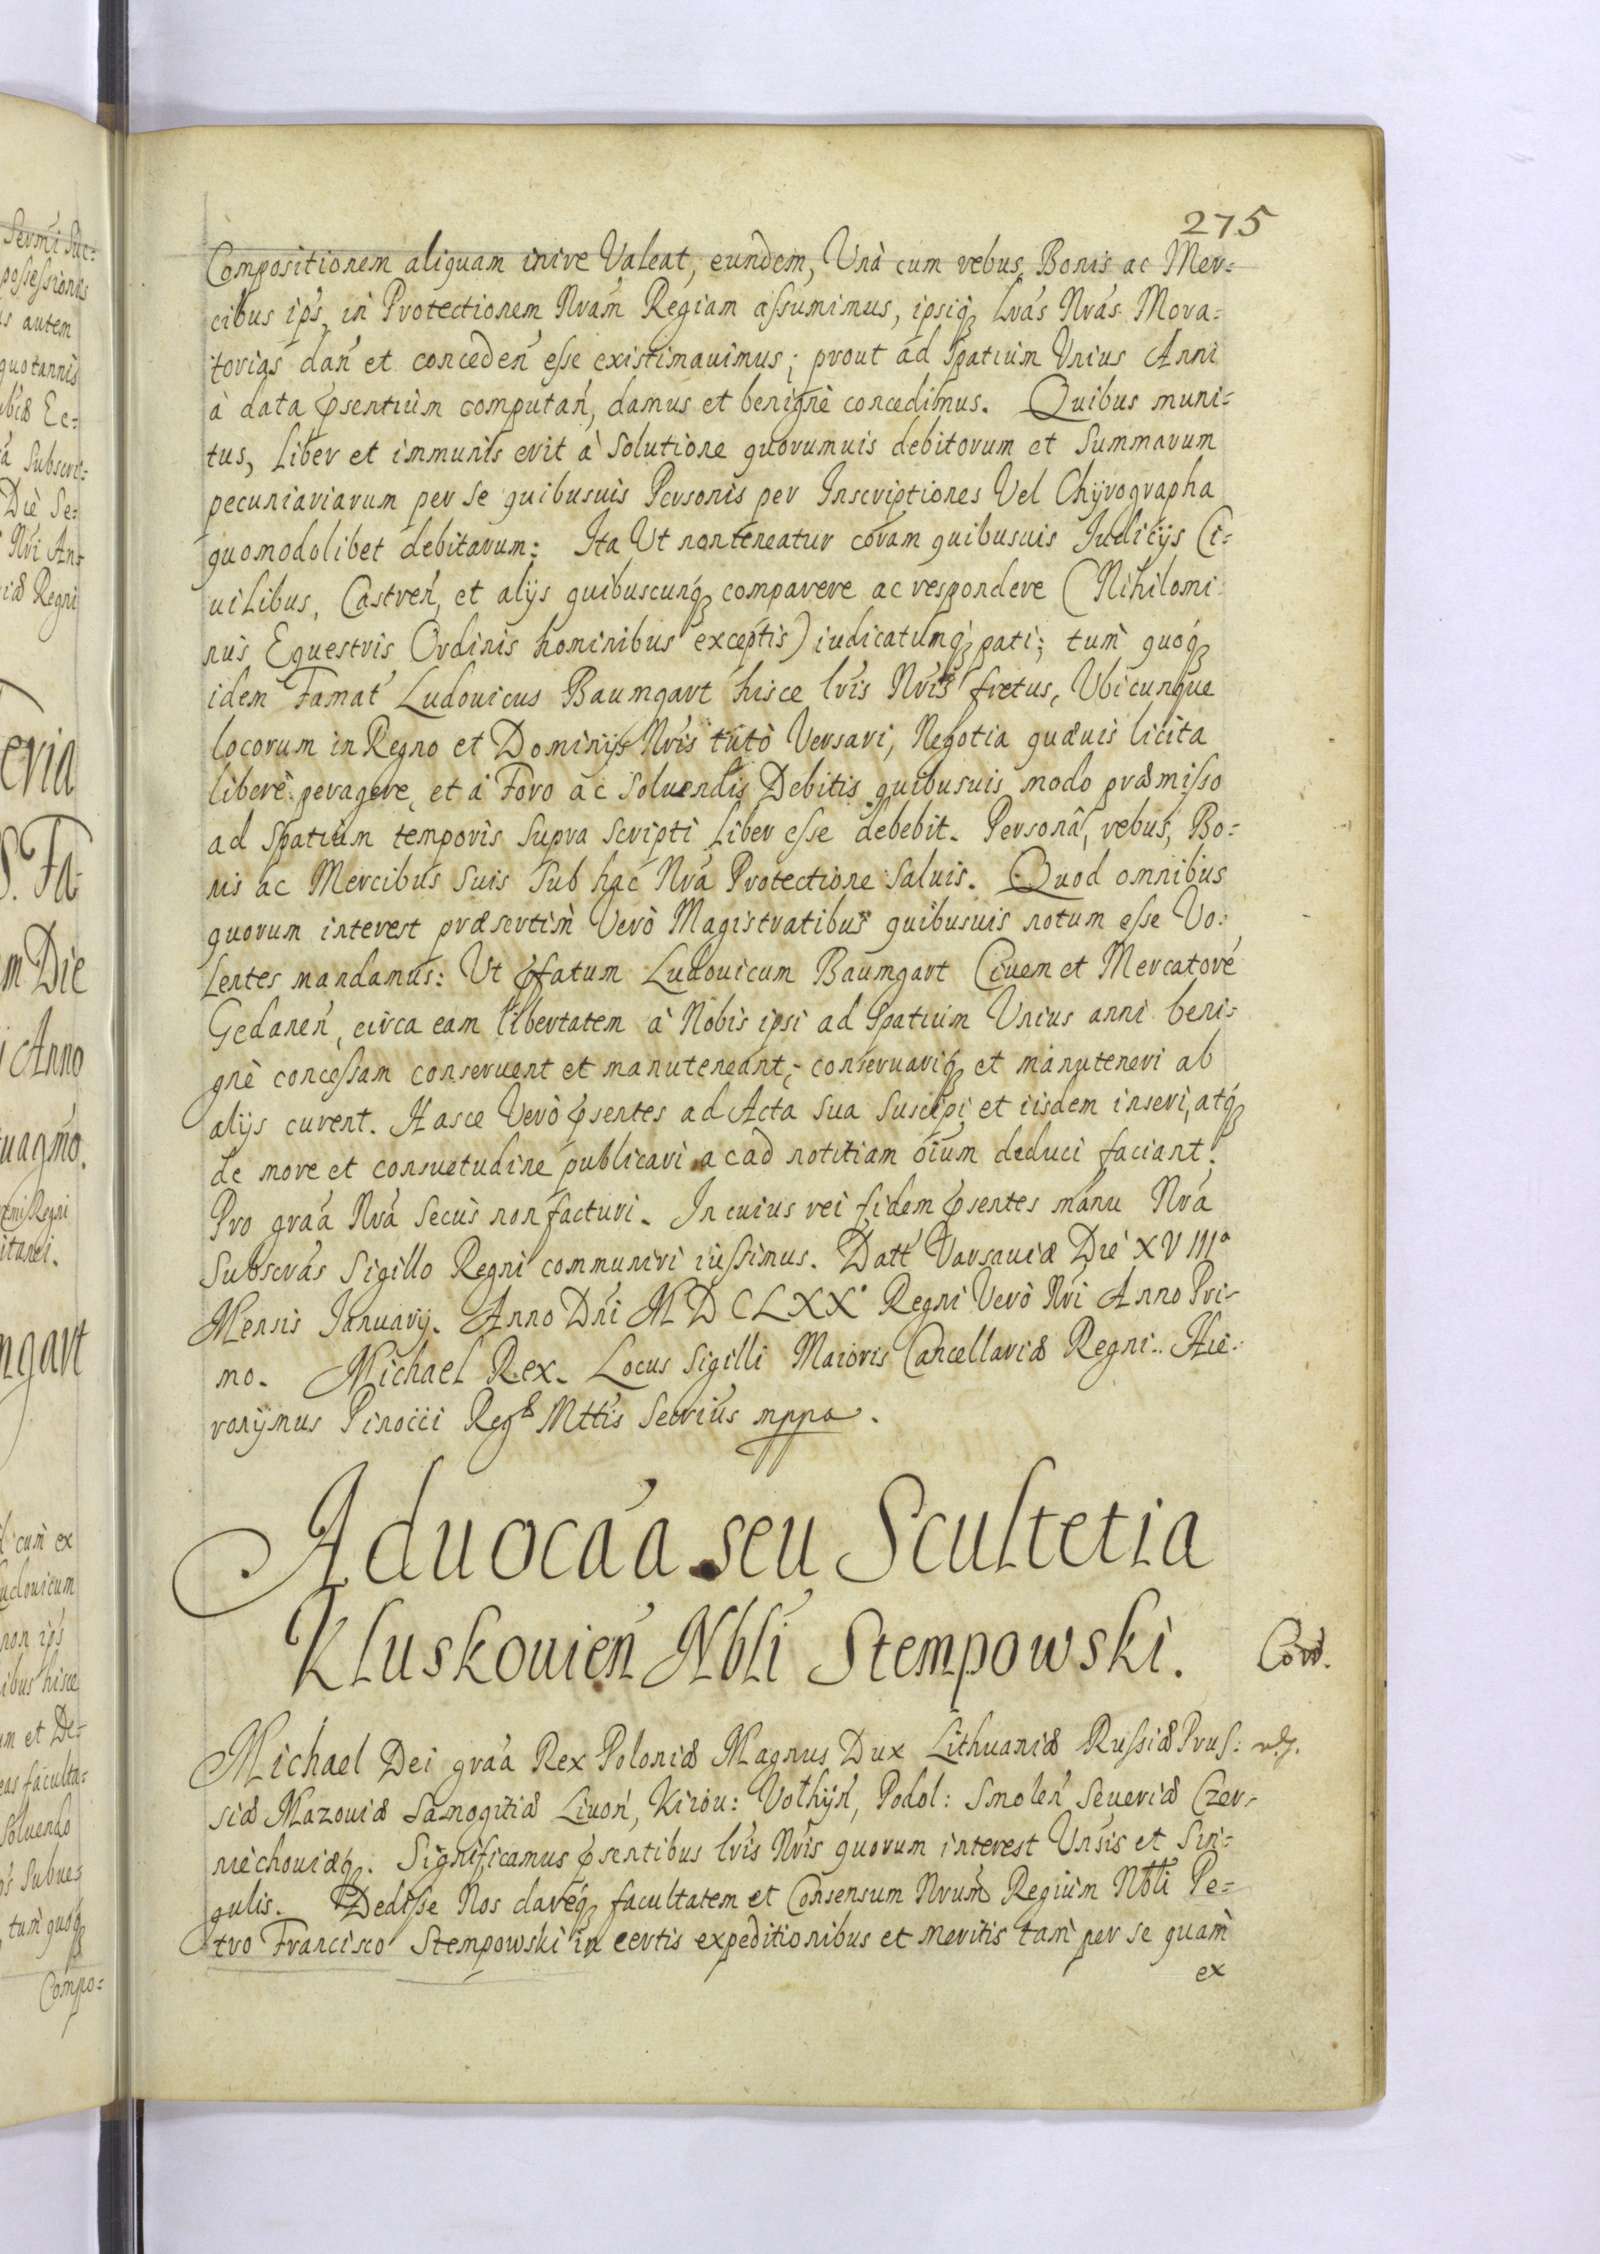 275
Compositionem aliquam inire Valeat, eundem, Unà cum rebus, Bonis ac Mer=
cibus ips, in Protectionem Nram Regiam assumimus, ipsiq lras Nras Mora=
torias dan et conceden esse existimauimus; prout ad Spatium Unius Anni
à data psentium computan, damus et benignè concedimus. Quibus muni=
tus, Liber et immunis erit à Solutione quorumuis debitorum et Summarum
pecuniariarum per se quibusuis Personis per Inscriptiones Vel Chyrographa
quomodolibet debitarum: Ita Ut non teneatur coram quibusuis Iudicijs Ci=
uilibus, Castren, et alijs quibuscunq comparere ac respondere (Nihilomi=
nus Equestris Ordinis hominibus exceptis) iudicatumq pati; tum quoq
idem Famat Ludouicus Baumgart hisce lris Nris fretus, Ubicunque
locorum in Regno et Dominijs Nris tutò Versari, Negotia quæuis licita
liberè peragere, et à Foro ac Soluendis Debitis quibusuis modo præmisso
ad Spatium temporis Supra Scripti Liber esse debebit. Personâ, rebus, Bo=
nis ac Mercibus Suis Sub hac Nra Protectione Saluis. Quod omnibus
quorum interest præsertim Verò Magistratibus quibusuis notum esse Vo=
Lentes mandamus: Ut pfatum Ludouicum Baumgart Ciuem et Mercatore
Gedanen, circa eam libertatem à Nobis ipsi ad Spatium Unius anni beni=
gnè concessam conseruent et manuteneant, conseruariq et manuteneri ab
alijs curent. Hasce Verò psentes ad Acta Sua Suscipi et iisdem inseri, atq
de more et consuetudine publicari ac ad notitiam oium deduci faciant.
Pro graa Nra Secus non facturi. In cuius rei fidem psentes manu Nra
Subscras Sigillo Regni communiri iussimus. Datt Varsauiæ Die XVIIIa
Mensis Ianuarij. Anno Dni MDCLXX° Regni Verò Nri Anno Pri=
mo. Michael Rex. Locus Sigilli Maioris Cancellariæ Regni. Hie=
ronymus Pinocci Regæ Mttis Secrius mppa.
Aduocaa seu Scultetia
Kluskouien Nbli Stempowski.
Michael Dei graa Rex Poloniæ Magnus Dux Lithuaniæ Russiæ Prus=
siæ Mazouiæ Samogitiæ Liuon, Kiiou: Volhyn, Podol: Smolen Seueriæ Czer=
niechouiæq. Significamus psentibus lris Nris quorum interest Unsis et Sin=
gulis. Dedisse Nos dareq facultatem et Consensum Nrum Regium Nbli Pe=
tro Francisco Stempowski in certis expeditionibus et meritis tam per se quam
ex